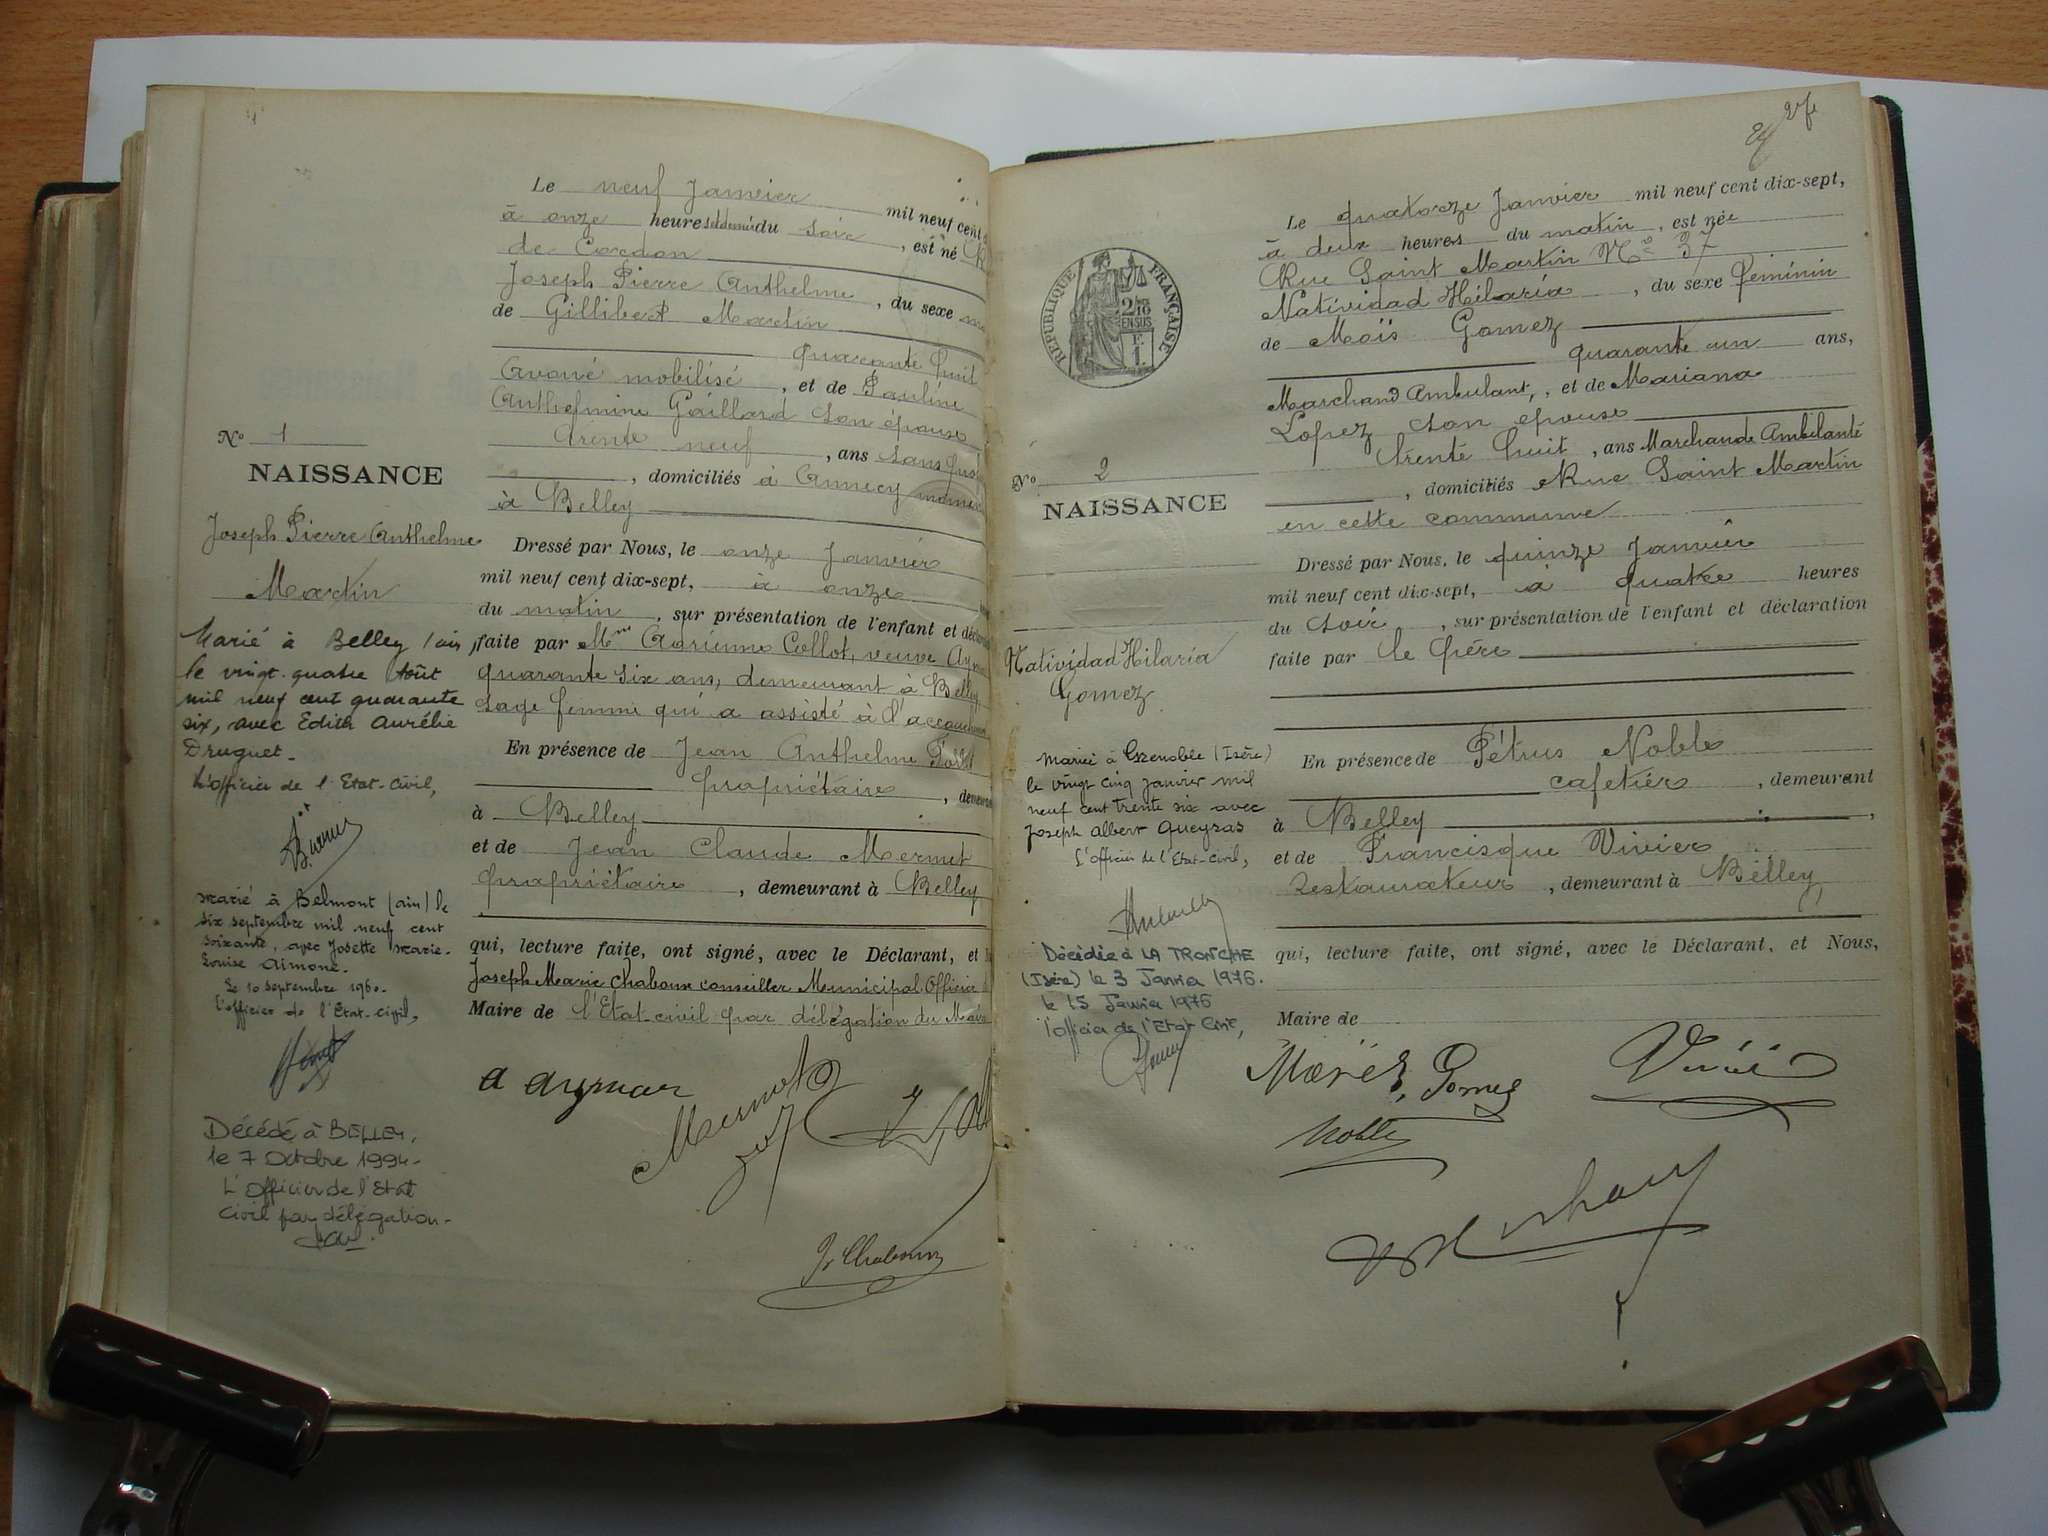 Le neuf Janvier mil neuf cent
à onze heures et demie du soir, est né
de Cordon
Joseph Pierre Anthelme, du sexe
de Gillibert Martin
quarante huit
Avoué mobilisé, et de Pauline
Anthelmine Gaillard son épouse
trente neuf, ans sans
, domiciliés à Annecy
à Belley
N° 1
NAISSANCE
Joseph Pierre Anthelme
Martin
Dressé par Nous, le onze Janvier
mil neuf cent dix-sept, à onze
du matin, sur présentation de l'enfant et
faite par Mme Adrienne Collot, veuve
quarante six ans, demeurant à Belley
sage femme qui a assisté à l'accouchement
En présence de Jean Anthelme
propriétaire,
à Belley
et de Jean Claude Mermet
propriétaire, demeurant à Belley
qui, lecture faite, ont signé, avec le Déclarant, et
Joseph Marie Chaboux conseiller Municipal Officier
Maire de l'Etat-civil par délégation du Maire
A Aymar
Mermet
J. Chaboux
Marié à Belley (ain)
le vingt-quatre Août
mil neuf cent quarante
six, avec Edith Aurélie
Druguet.
L'officier de l'Etat-Civil,
Marié à Belmont (ain) le
six septembre mil neuf cent
soixante, avec Josette Marie-
Louise Aimone.
Le 10 septembre 1960.
l'officier de l'Etat-civil,
Décédé à BELLEY,
le 7 Octobre 1994.
L'Officier de l'Etat
Civil par délégation.
27
RÉPUBLIQUE FRANÇAISE
2/10
EN SUS
F.
1.
Le quatorze Janvier mil neuf cent dix-sept,
à deux heures du matin, est née
Rue Saint Martin N° 37
Natividad Hilaria, du sexe féminin
de Moïs Gomez
quarante un ans,
Marchand Ambulant, et de Mariana
Lopez son épouse
trente huit, ans Marchande Ambulante
, domiciliés Rue Saint Martin
en cette commune
N° 2
NAISSANCE
Natividad Hilaria
Gomez
Dressé par Nous, le quinze Janvier
mil neuf cent dix-sept, à quatre heures
du soir, sur présentation de l'enfant et déclaration
faite par le père
En présence de Pétrus Noble
cafetier, demeurant
à Belley,
et de Francisque Vivier
restaurateur, demeurant à Belley
qui, lecture faite, ont signé, avec le Déclarant, et Nous,
Maire de
Gomez
Noble
Mariée à Grenoble (Isère)
le vingt cinq janvier mil
neuf cent trente six avec
Joseph Albert Queyras
L'officier de l'Etat-Civil,
Décédée à LA TRONCHE
(Isère) le 3 Janvier 1976.
le 15 Janvier 1976
l'officier de l'Etat Civil,